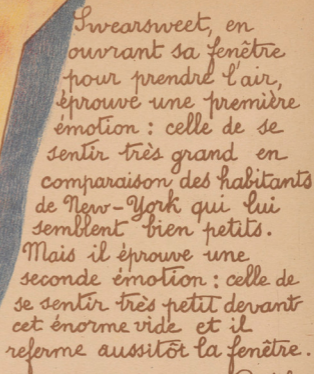 Swearsweet, en
ouvrant sa fenêtre
pour prendre l'air,
éprouve une première
émotion : celle de se
sentir très grand en
comparaison des habitants
de New-York qui lui
semblent bien petits.
Mais il éprouve une
seconde émotion : celle de
se sentir très petit devant
cet énorme vide et il
referme aussitôt la fenêtre.